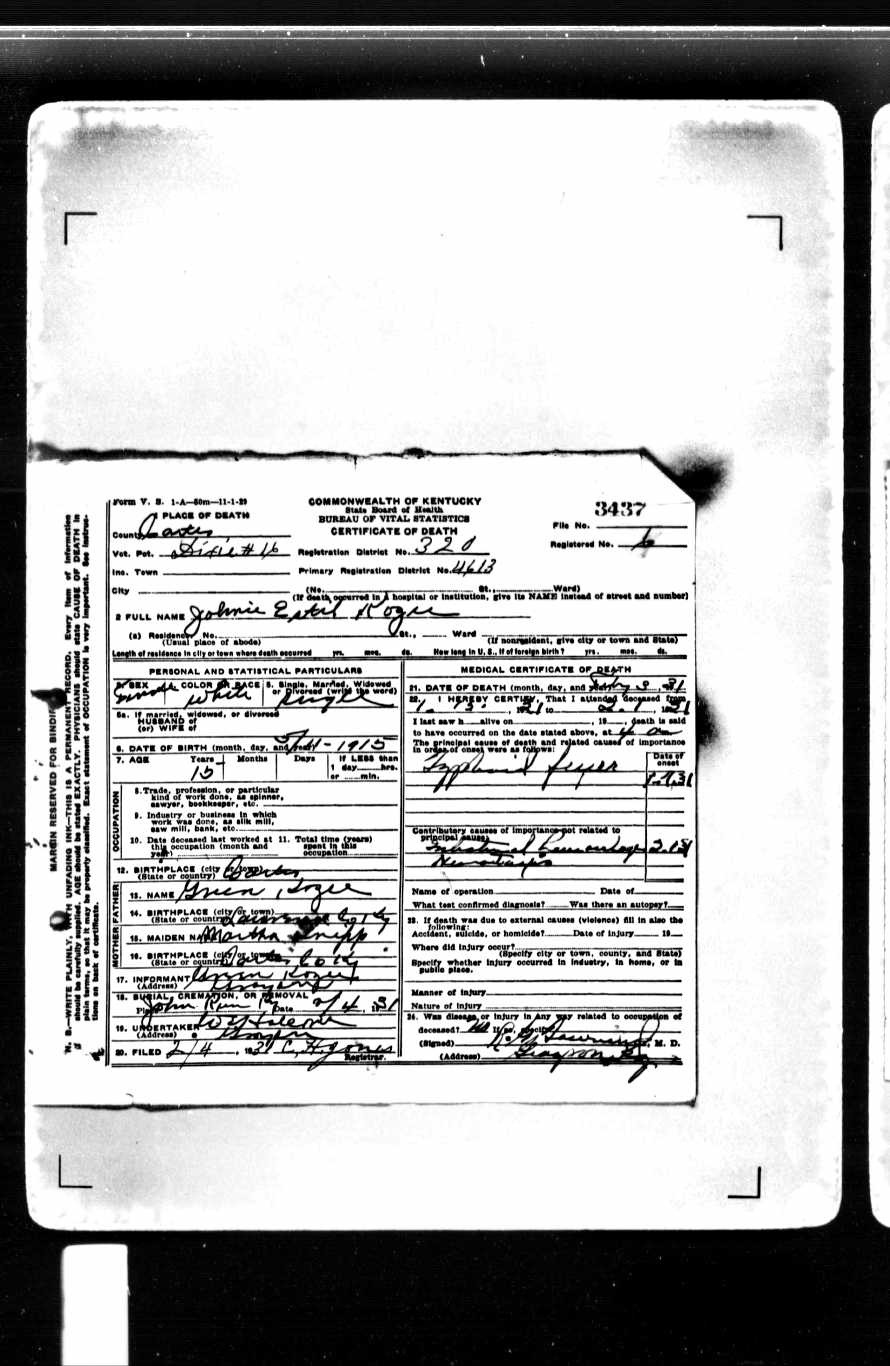 Form V. S. 1-A—50m—11-1-29
COMMONWEALTH OF KENTUCKY
State Board of Health
BUREAU OF VITAL STATISTICS
CERTIFICATE OF DEATH
3437
File No.
Registered No. 6
1 PLACE OF DEATH
County Carter
Vot. Pct. Dixie #16
Registration District No. 320
Inc. Town
Primary Registration District No. 4613
City (No. St., Ward)
(If death occurred in A hospital or institution, give its NAME instead of street and number)
2 FULL NAME Johnie Estil Kozee
(a) Residence, No. St., Ward
(Usual place of abode) (If nonresident, give city or town and State)
Length of residence in city or town where death occurred yrs. mos. ds. How long in U. S., if of foreign birth? yrs. mos. ds.
PERSONAL AND STATISTICAL PARTICULARS
3. SEX 4. COLOR OR RACE 5. Single, Married, Widowed or Divorced (write the word)
White Single
5a. If married, widowed, or divorced
HUSBAND of
(or) WIFE of
6. DATE OF BIRTH (month, day, and year) 1915
7. AGE Years Months Days If LESS than
1 day hrs.
or min.
15
OCCUPATION
8. Trade, profession, or particular
kind of work done, as spinner,
sawyer, bookkeeper, etc.
9. Industry or business in which
work was done, as silk mill,
saw mill, bank, etc.
10. Date deceased last worked at
this occupation (month and
year)
11. Total time (years)
spent in this
occupation
12. BIRTHPLACE (city or town) Carter
(State or country)
FATHER
13. NAME Green Kozee
14. BIRTHPLACE (city or town)
(State or country) Lawrence Co Ky
MOTHER
15. MAIDEN NAME Martha
16. BIRTHPLACE (city or town)
(State or country) Carter Co Ky
17. INFORMANT Green Kozee
(Address)
18. BURIAL, CREMATION, OR REMOVAL
Place Date 2/4, 1931
19. UNDERTAKER
(Address) Grayson
20. FILED 2/4, 1931 C. H. Jones
Registrar.
MEDICAL CERTIFICATE OF DEATH
21. DATE OF DEATH (month, day, and year) Feby 3, 1931
22. I HEREBY CERTIFY, That I attended deceased from
I last saw h alive on , 19 , death is said
to have occurred on the date stated above, at
The principal cause of death and related causes of importance
in order of onset were as follows:
Date of
onset
Typhoid fever
Contributory causes of importance not related to
principal cause:
Intestinal hemorrhage
Name of operation Date of
What test confirmed diagnosis? Was there an autopsy?
23. If death was due to external causes (violence) fill in also the
following:
Accident, suicide, or homicide? Date of injury 19
Where did injury occur?
(Specify city or town, county, and State)
Specify whether injury occurred in industry, in home, or in
public place.
Manner of injury
Nature of injury
24. Was disease or injury in any way related to occupation of
deceased? No If so, specify
(Signed) M. D.
(Address) Grayson Ky
MARGIN RESERVED FOR BINDING
N. B.—WRITE PLAINLY, WITH UNFADING INK—THIS IS A PERMANENT RECORD. Every item of information
should be carefully supplied. AGE should be stated EXACTLY. PHYSICIANS should state CAUSE OF DEATH in
plain terms, so that it may be properly classified. Exact statement of OCCUPATION is very important. See instruc-
tions on back of certificate.